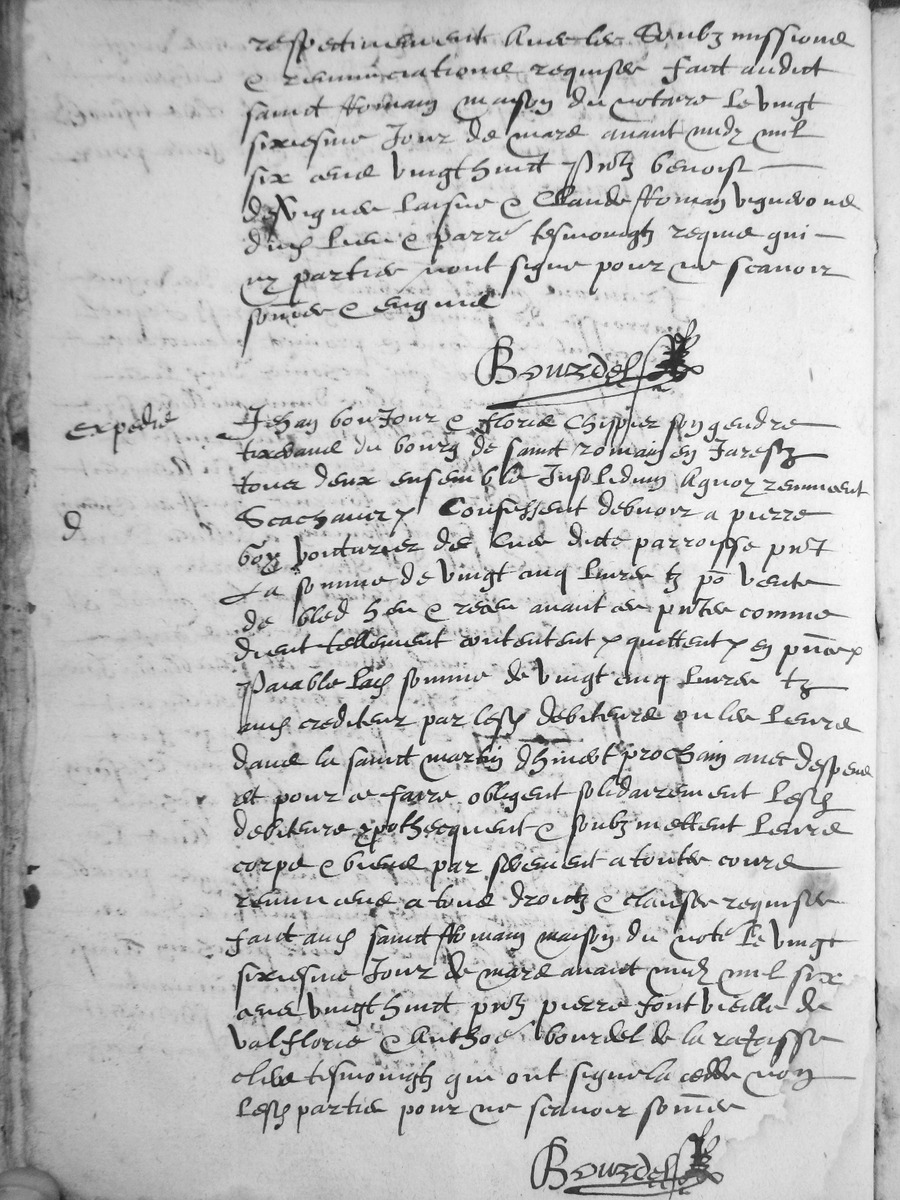 respectivement avec les soubzmissions
& renunciations requises faict audict
sainct Romain maison du notaire le vingt
sixiesme jour de mars avant midy mil
six cens vingt huict p{nt}z benoist
de vignes laisne & Claude Romain vignerons
dud lieu & parre tesmoingtz requis qui
ny parties nont signe pour ne scavoir
sommes & enquis
Bourdel
expedie
Jehan bonjour & floris Chispier son gendre
tixerans du bourg de sainct romain en Jarestz
tous deux ensemble Insolidum a quoy renuncent
Scachant Confessent debvoir a pierre
voiturier de ditte parroisse p{nt}
La somme de vingt cinq livres tz po vente
de bled heu & receu avant ces p{nt}es comme
dient tellement contentent quittent en
Paiable lad somme de vingt cinq livres tz
aud crediteur par lesd debiteurs ou les leurs
dans la sainct martin dhivert prochain avec despens
et pour ce faire obligent solidairement lesd
debiteurs ypothecquent & soubzmettent leurs
corps & biens par serement a toutes cours
renuncens a tous droictz & clauses requises
faict aud sainct Romain maison du note le vingt
sixiesme Jour de mars avant midy mil six
cens vingt huict p{nt}z pierre fontvieille de
valfloris & Anthoe bourdel de la
clive tesmoingtz qui ont signe la cedde non
lesd parties pour ne scavoir sommes
Bourdel